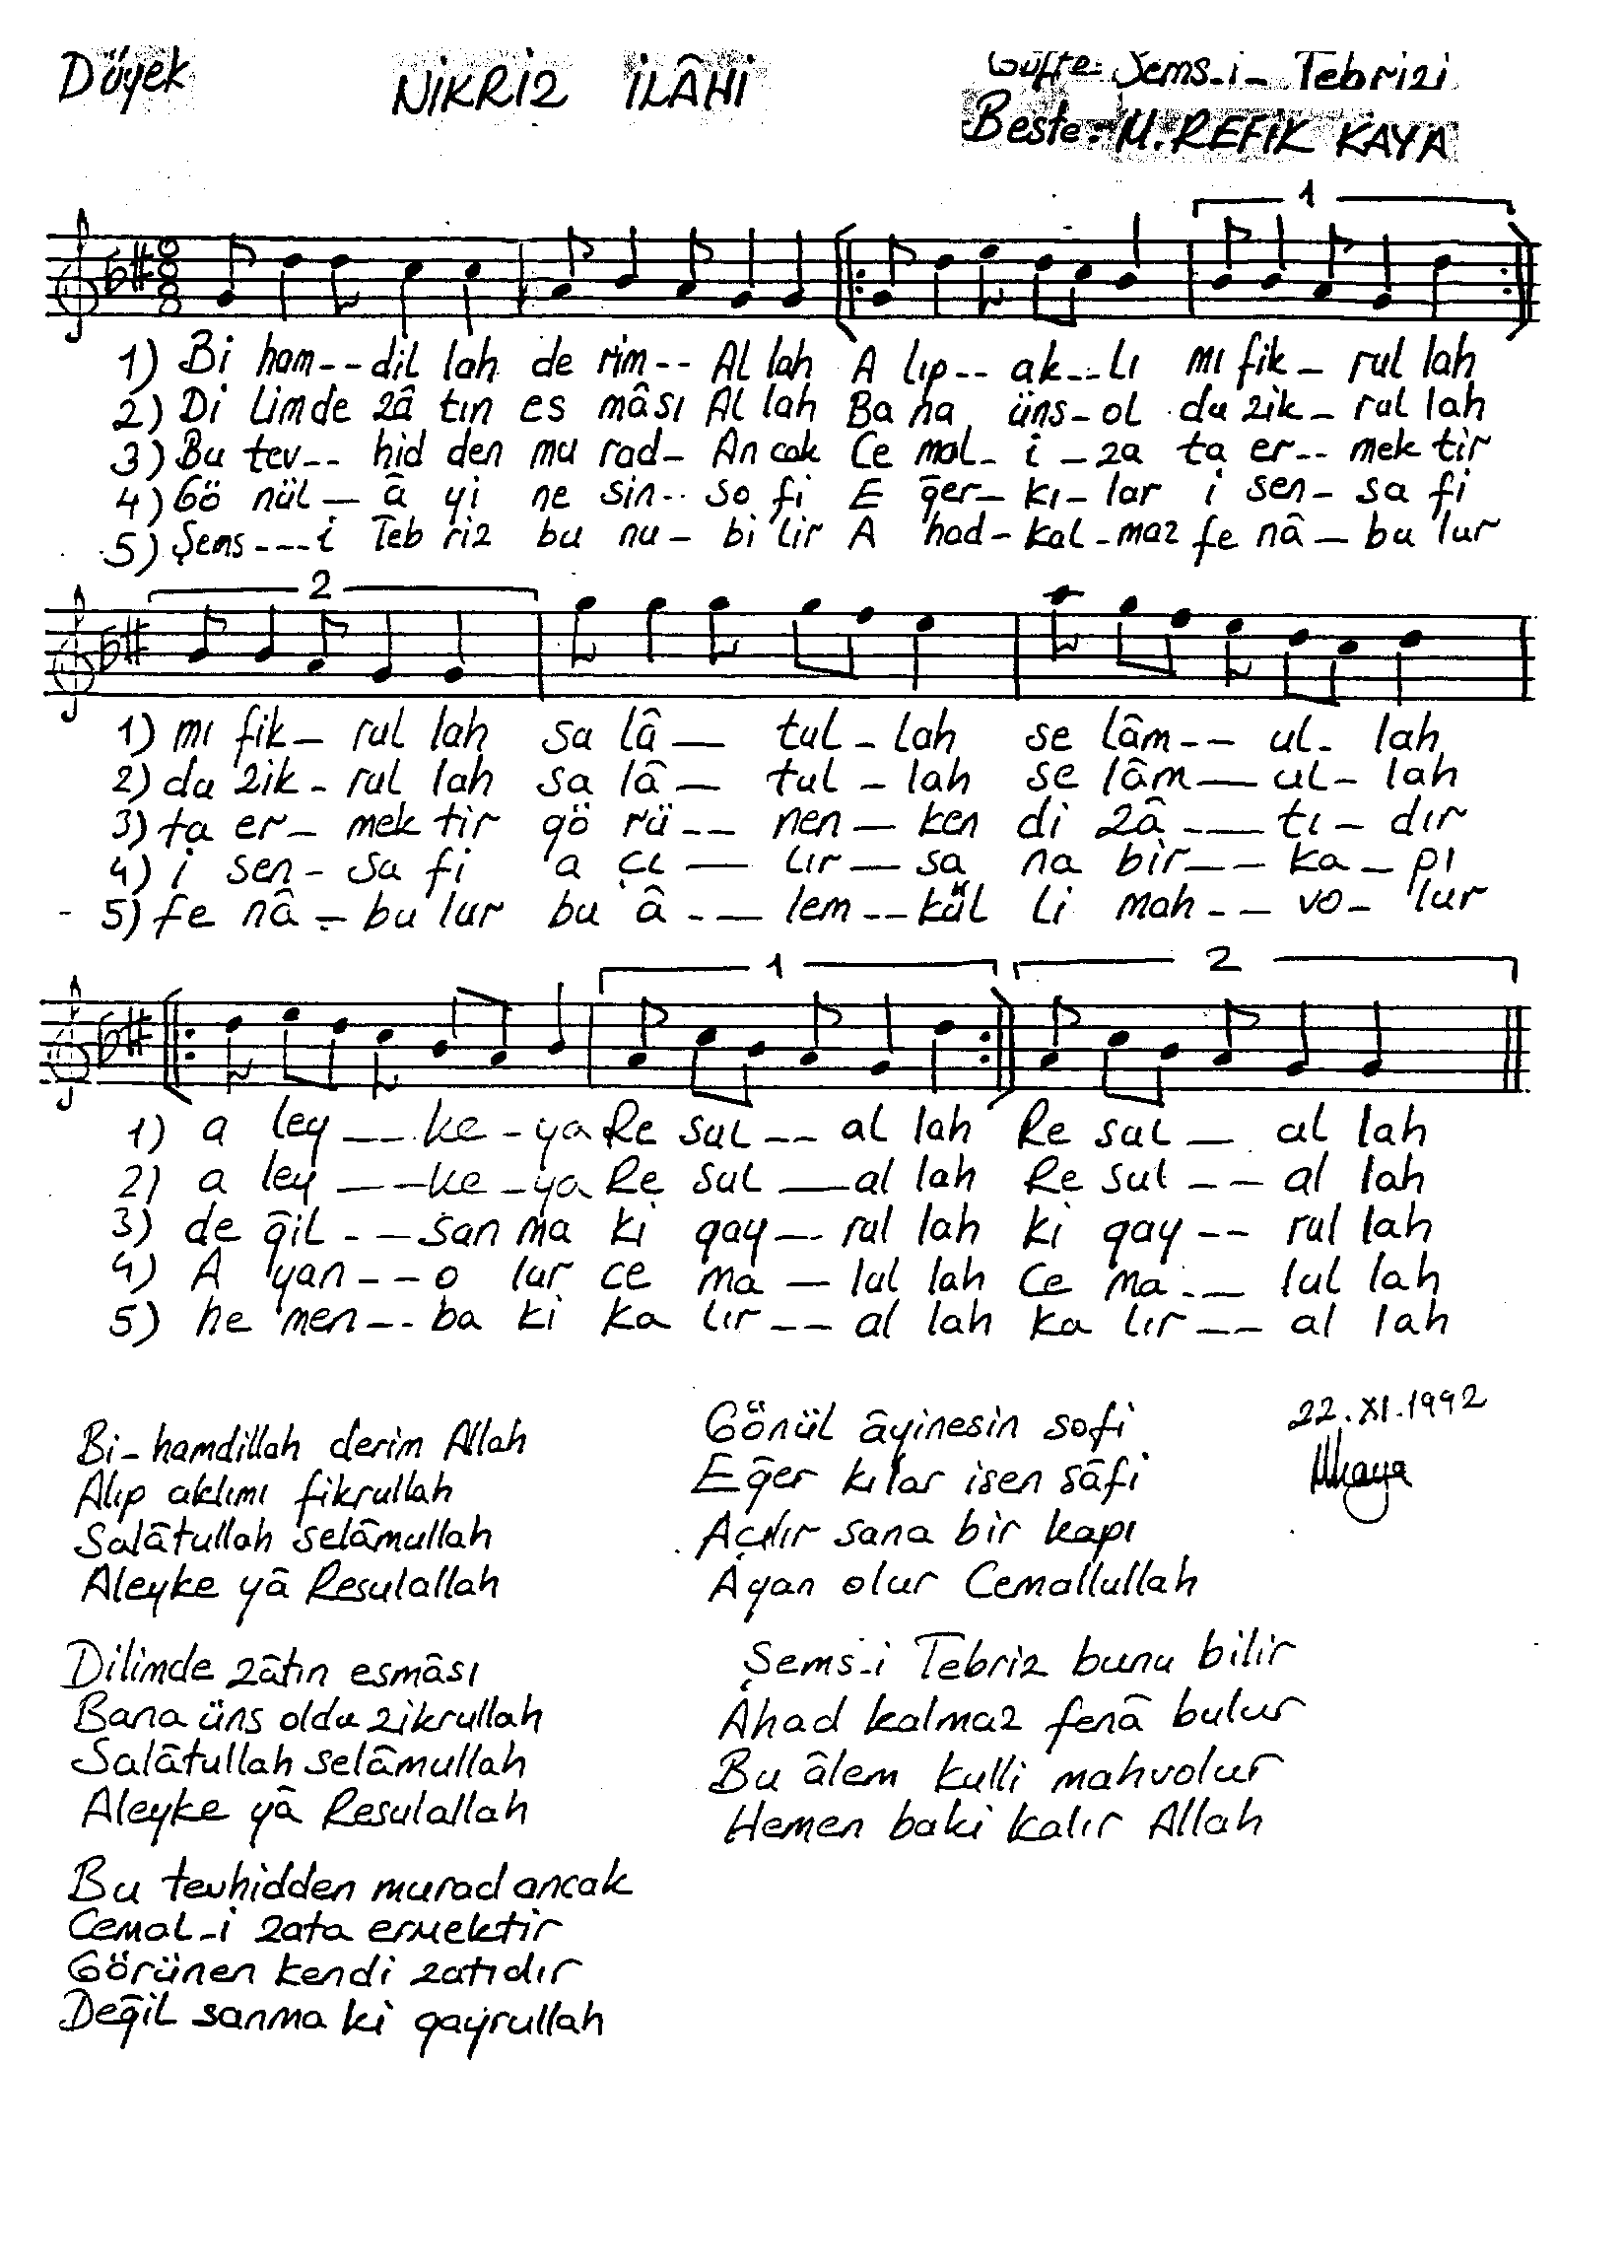 Düyek
NİKRİZ İLÂHİ
Güfte: Şems-i- Tebrizi
Beste: M. REFİK KAYA
1
8
8
1) Bi ham---dil lah de rim-- Al lah A lıp-- ak--lı mı fik- rul lah
2) Di limde zâ tın es mâsı Al lah Ba na üns-ol du zik- rul lah
3) Bu tev-- hid den mu rad- An cak Ce mal- i -za ta er-- mek tir
4) Gö nül- â yi ne sin-- so fi E ğer- kı- lar i sen- sa fi
5) Şems---i Teb riz bu nu- bi lir A had- kal-maz fe nâ- bu lur
2
1) mı fik- rul lah sa lâ- tul-lah se lâm-- ul- lah
2) du zik- rul lah sa lâ- tul-lah se lâm- ul- lah
3) ta er- mek tir gö rü-- nen- ken di zâ-- tı- dır
4) i sen- sa fi a çı- lır- sa na bir-- ka- pı
5) fe nâ- bu lur bu â-- lem--kül li mah-- vo- lur
1 2
1) a ley--ke-ya Re sul-- al lah Re sul- al lah
2) a ley--ke-ya Re sul-al lah Re sul-- al lah
3) de ğil--san ma ki gay-- rul lah ki gay-- rul lah
4) A yan--o lur ce ma- lul lah Ce ma-- lul lah
5) he men--ba ki ka lır-- al lah ka lır-- al lah
Bi-hamdillah derim Allah
Alıp aklımı fikrullah
Salâtullah selâmullah
Aleyke yâ Resulallah
Dilimde zâtın esmâsı
Bana üns oldu zikrullah
Salâtullah selâmullah
Aleyke yâ Resulallah
Bu tevhidden murad ancak
Cemal-i zata ermektir
Görünen kendi zatıdır
Değil sanma ki gayrullah
Gönül âyinesin sofi
Eğer kılar isen sâfi
Açılır sana bir kapı
Âyan olur Cemallullah
Şems-i Tebriz bunu bilir
Âhad kalmaz fenâ bulur
Bu âlem kulli mahvolur
Hemen baki kalır Allah
22.XI.1992
MKaya